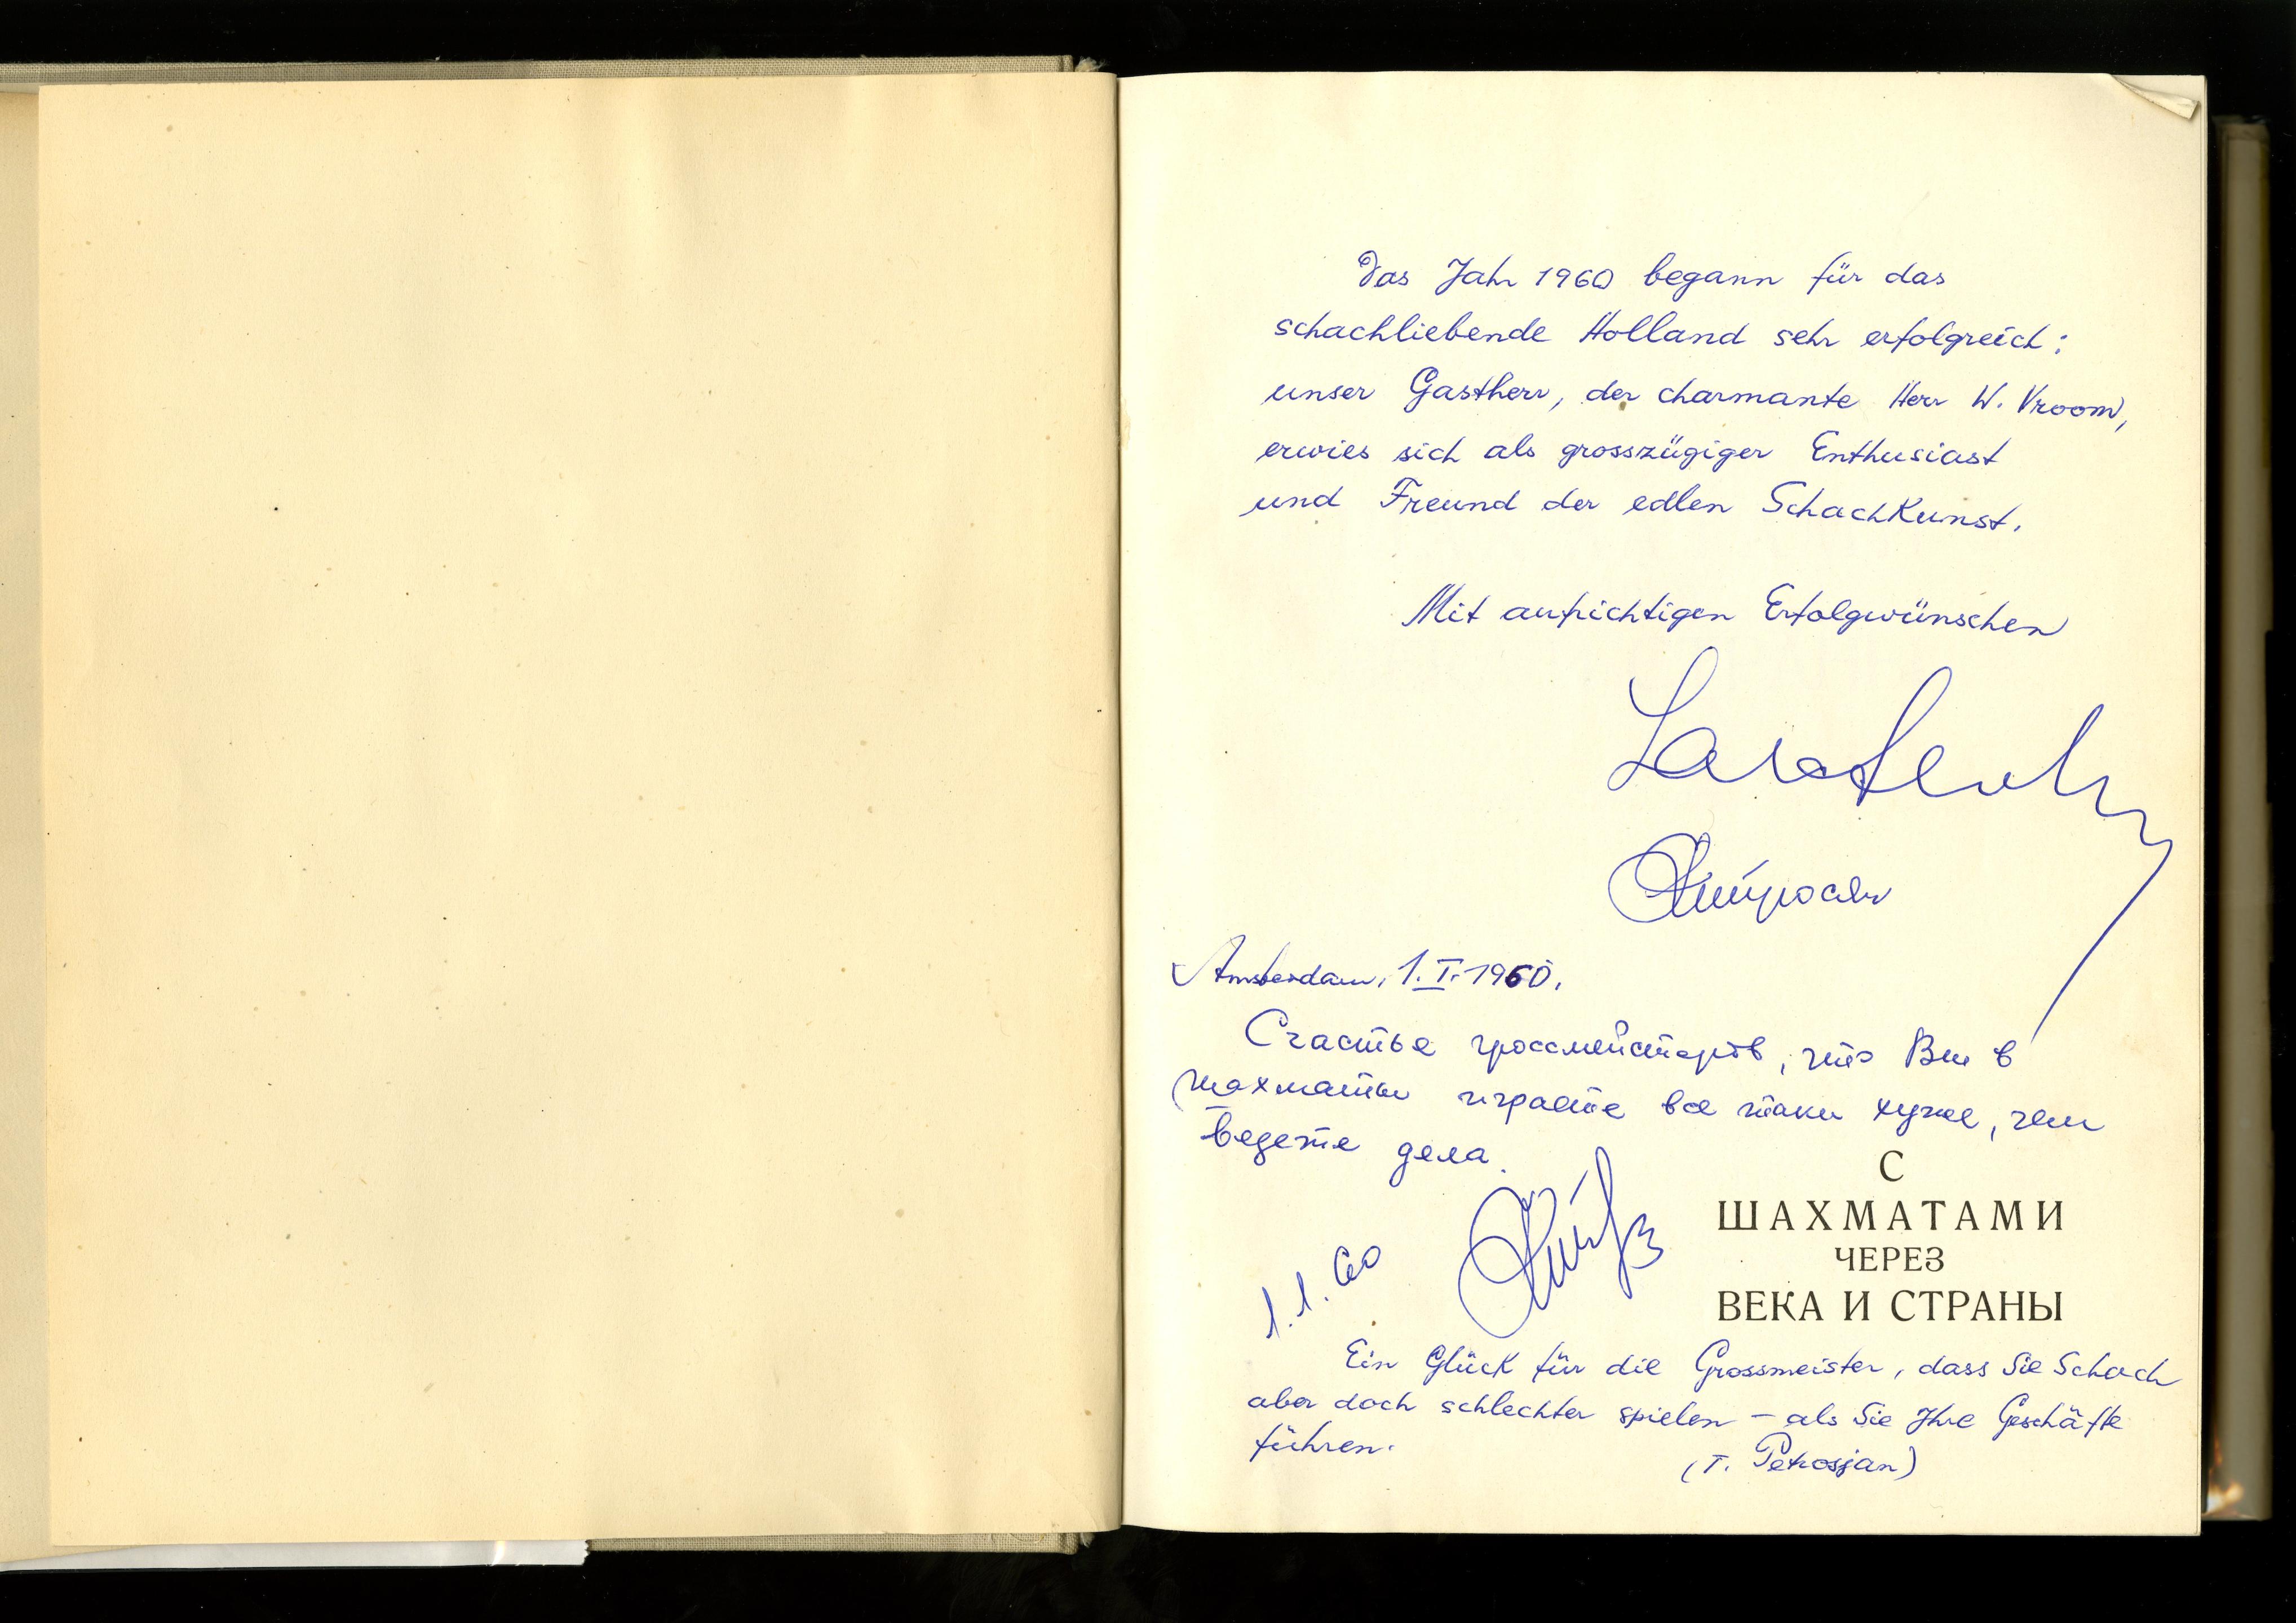 Das Jahr 1960 begann für das
schachliebende Holland sehr erfolgreich:
unser Gastherr, der charmante Herr W. Vroom,
erwies sich als grosszügiger Enthusiast
und Freund der edlen Schachkunst.
Mit aufrichtigen Erfolgwünschen
Amsterdam, 1.I.1960.
Счастье гроссмейстеров, что Вы в
шахматы играете все таки хуже, чем
ведете дела.
1.1.60
С
ШАХМАТАМИ
ЧЕРЕЗ
ВЕКА И СТРАНЫ
Ein Glück für die Grossmeister, dass Sie Schach
aber doch schlechter spielen – als Sie Ihre Geschäfte
führen.
(T. Petrosjan)